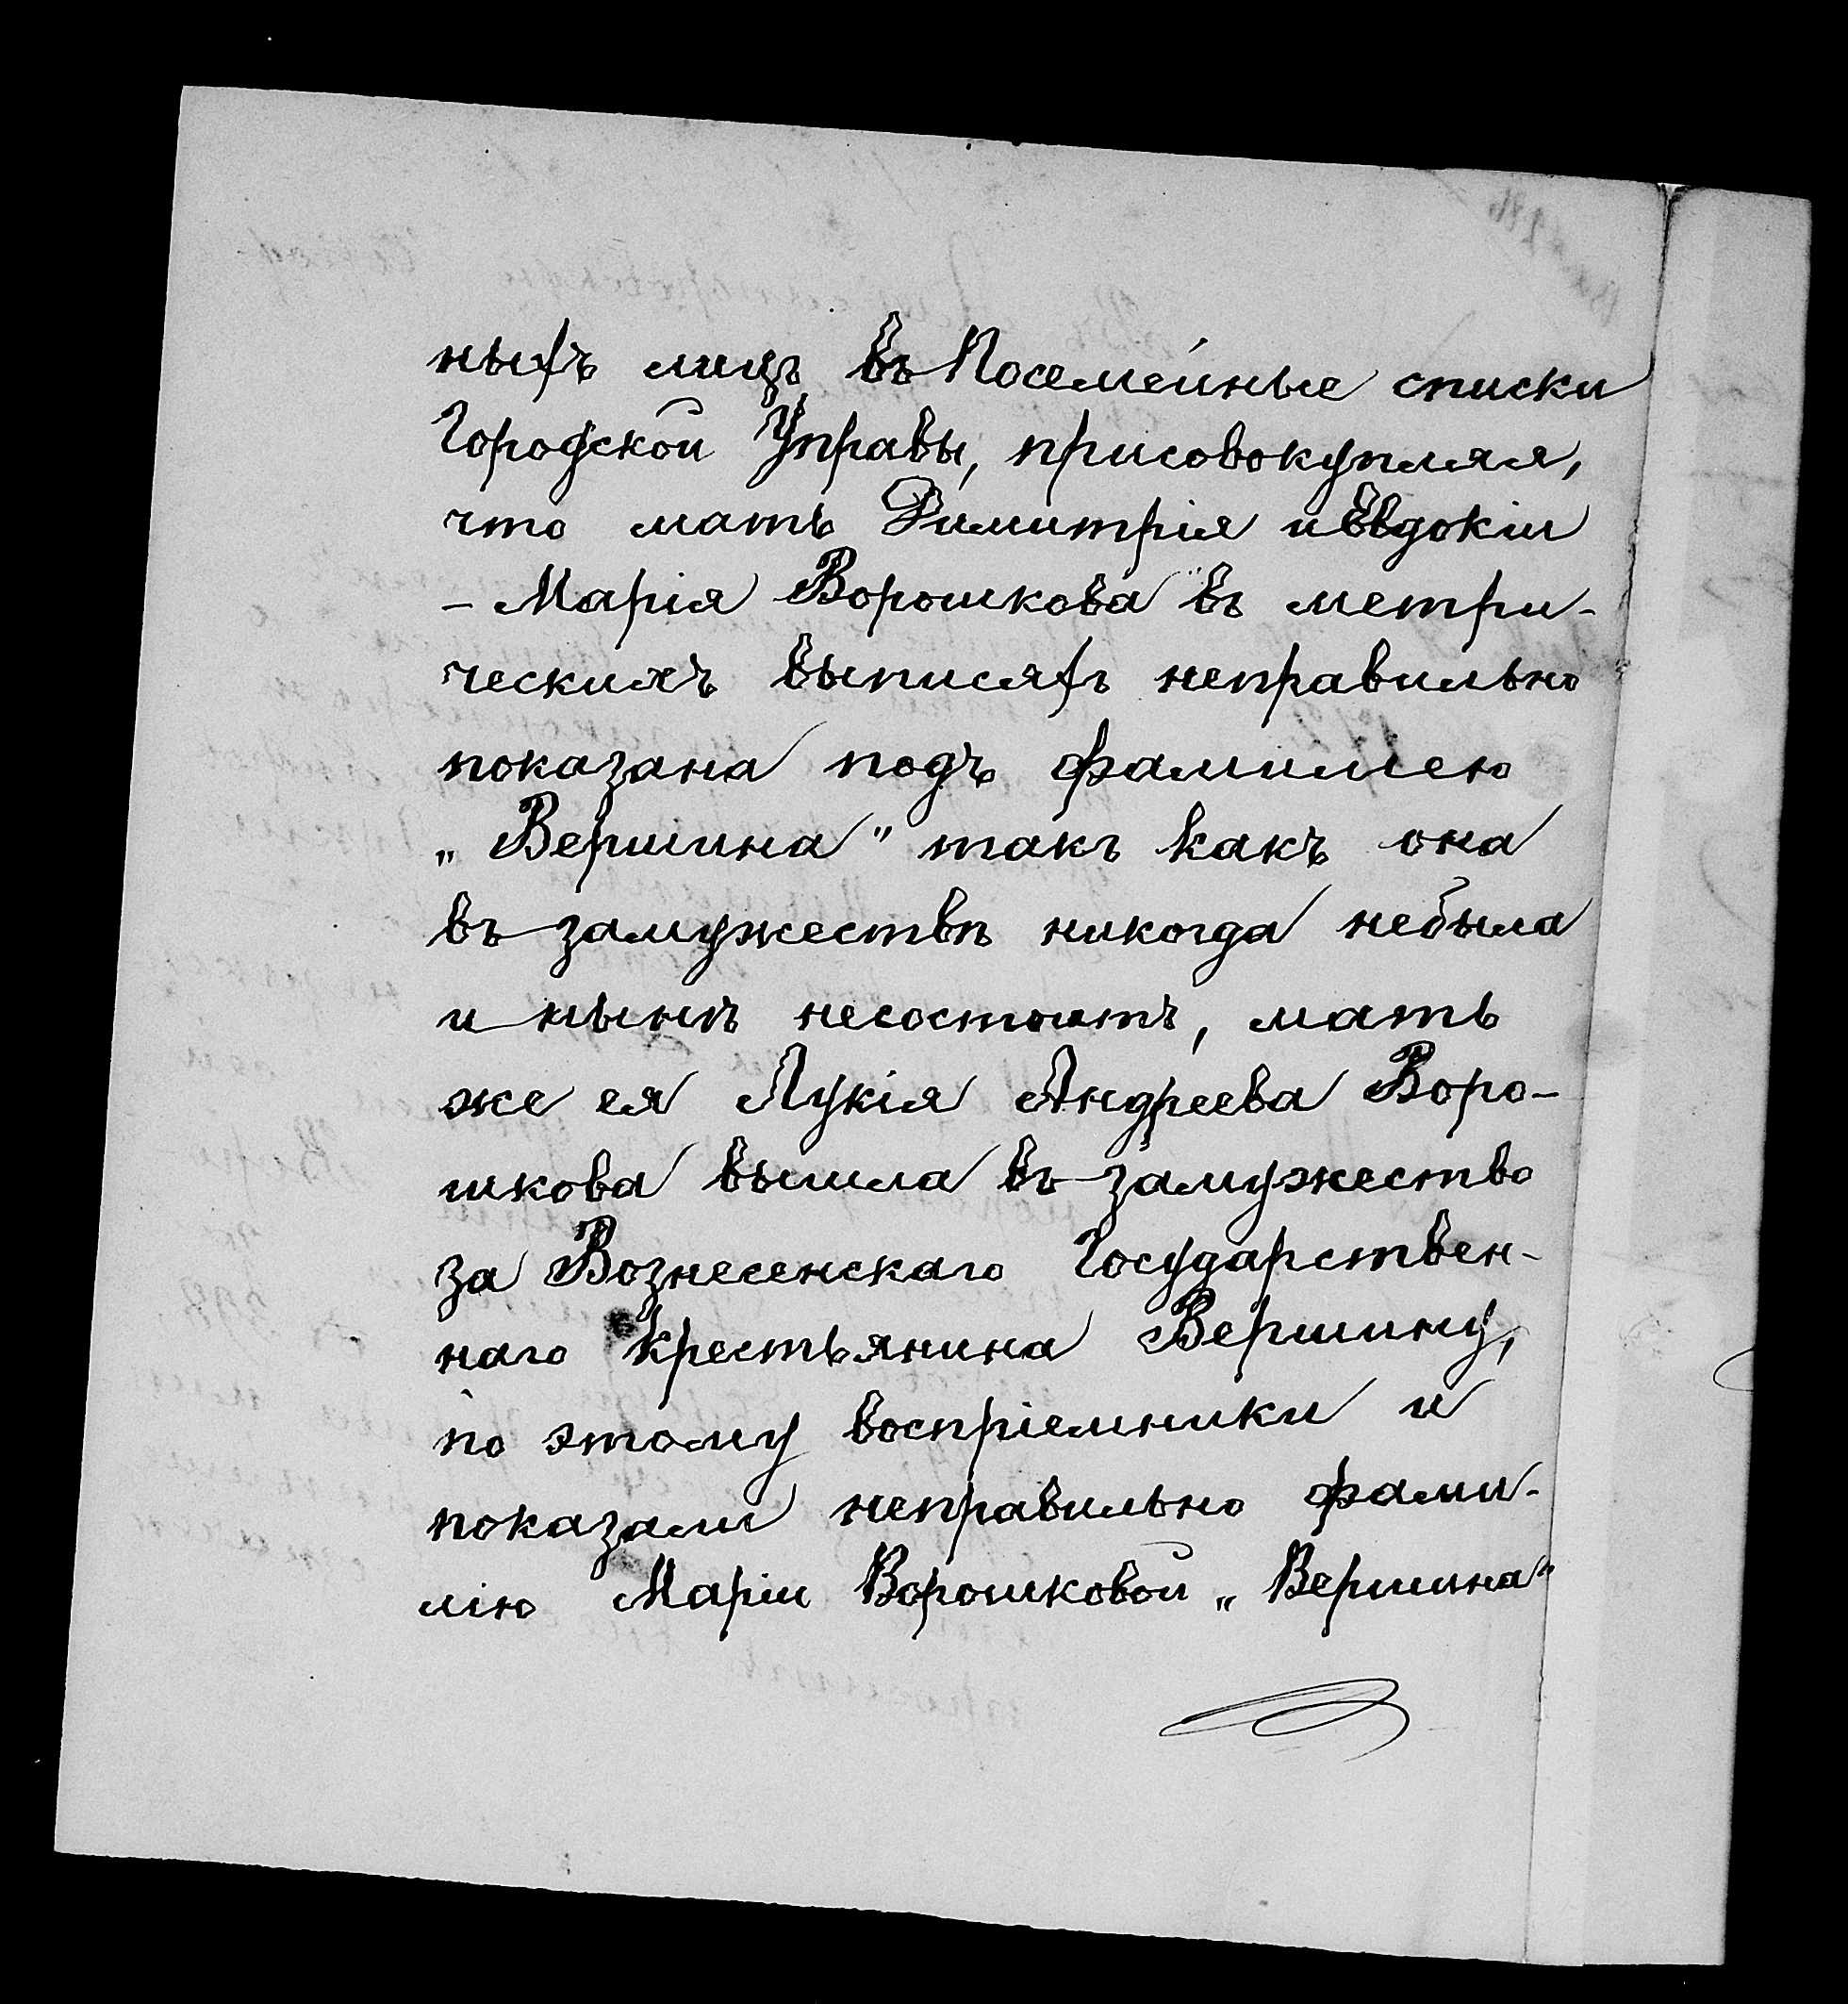 ныхъ лицъ въ Посемейные списки
Городской Управы, присовокупляя,
что мать Димитрія и Евдокіи
– Марія Ворошкова въ метри-
ческихъ выписяхъ неправильно
показана подъ фамиліею
„Вершина" такъ какъ она
въ замужествѣ никогда небыла
и нынѣ несостоитъ, мать
же ея Лукія Андреева Воро-
шкова вышла въ замужество
за Вознесенскаго Государствен-
наго крестьянина Вершину,
по этому воспріемники и
показали неправильно фами-
лію Маріи Ворошковой „Вершина"